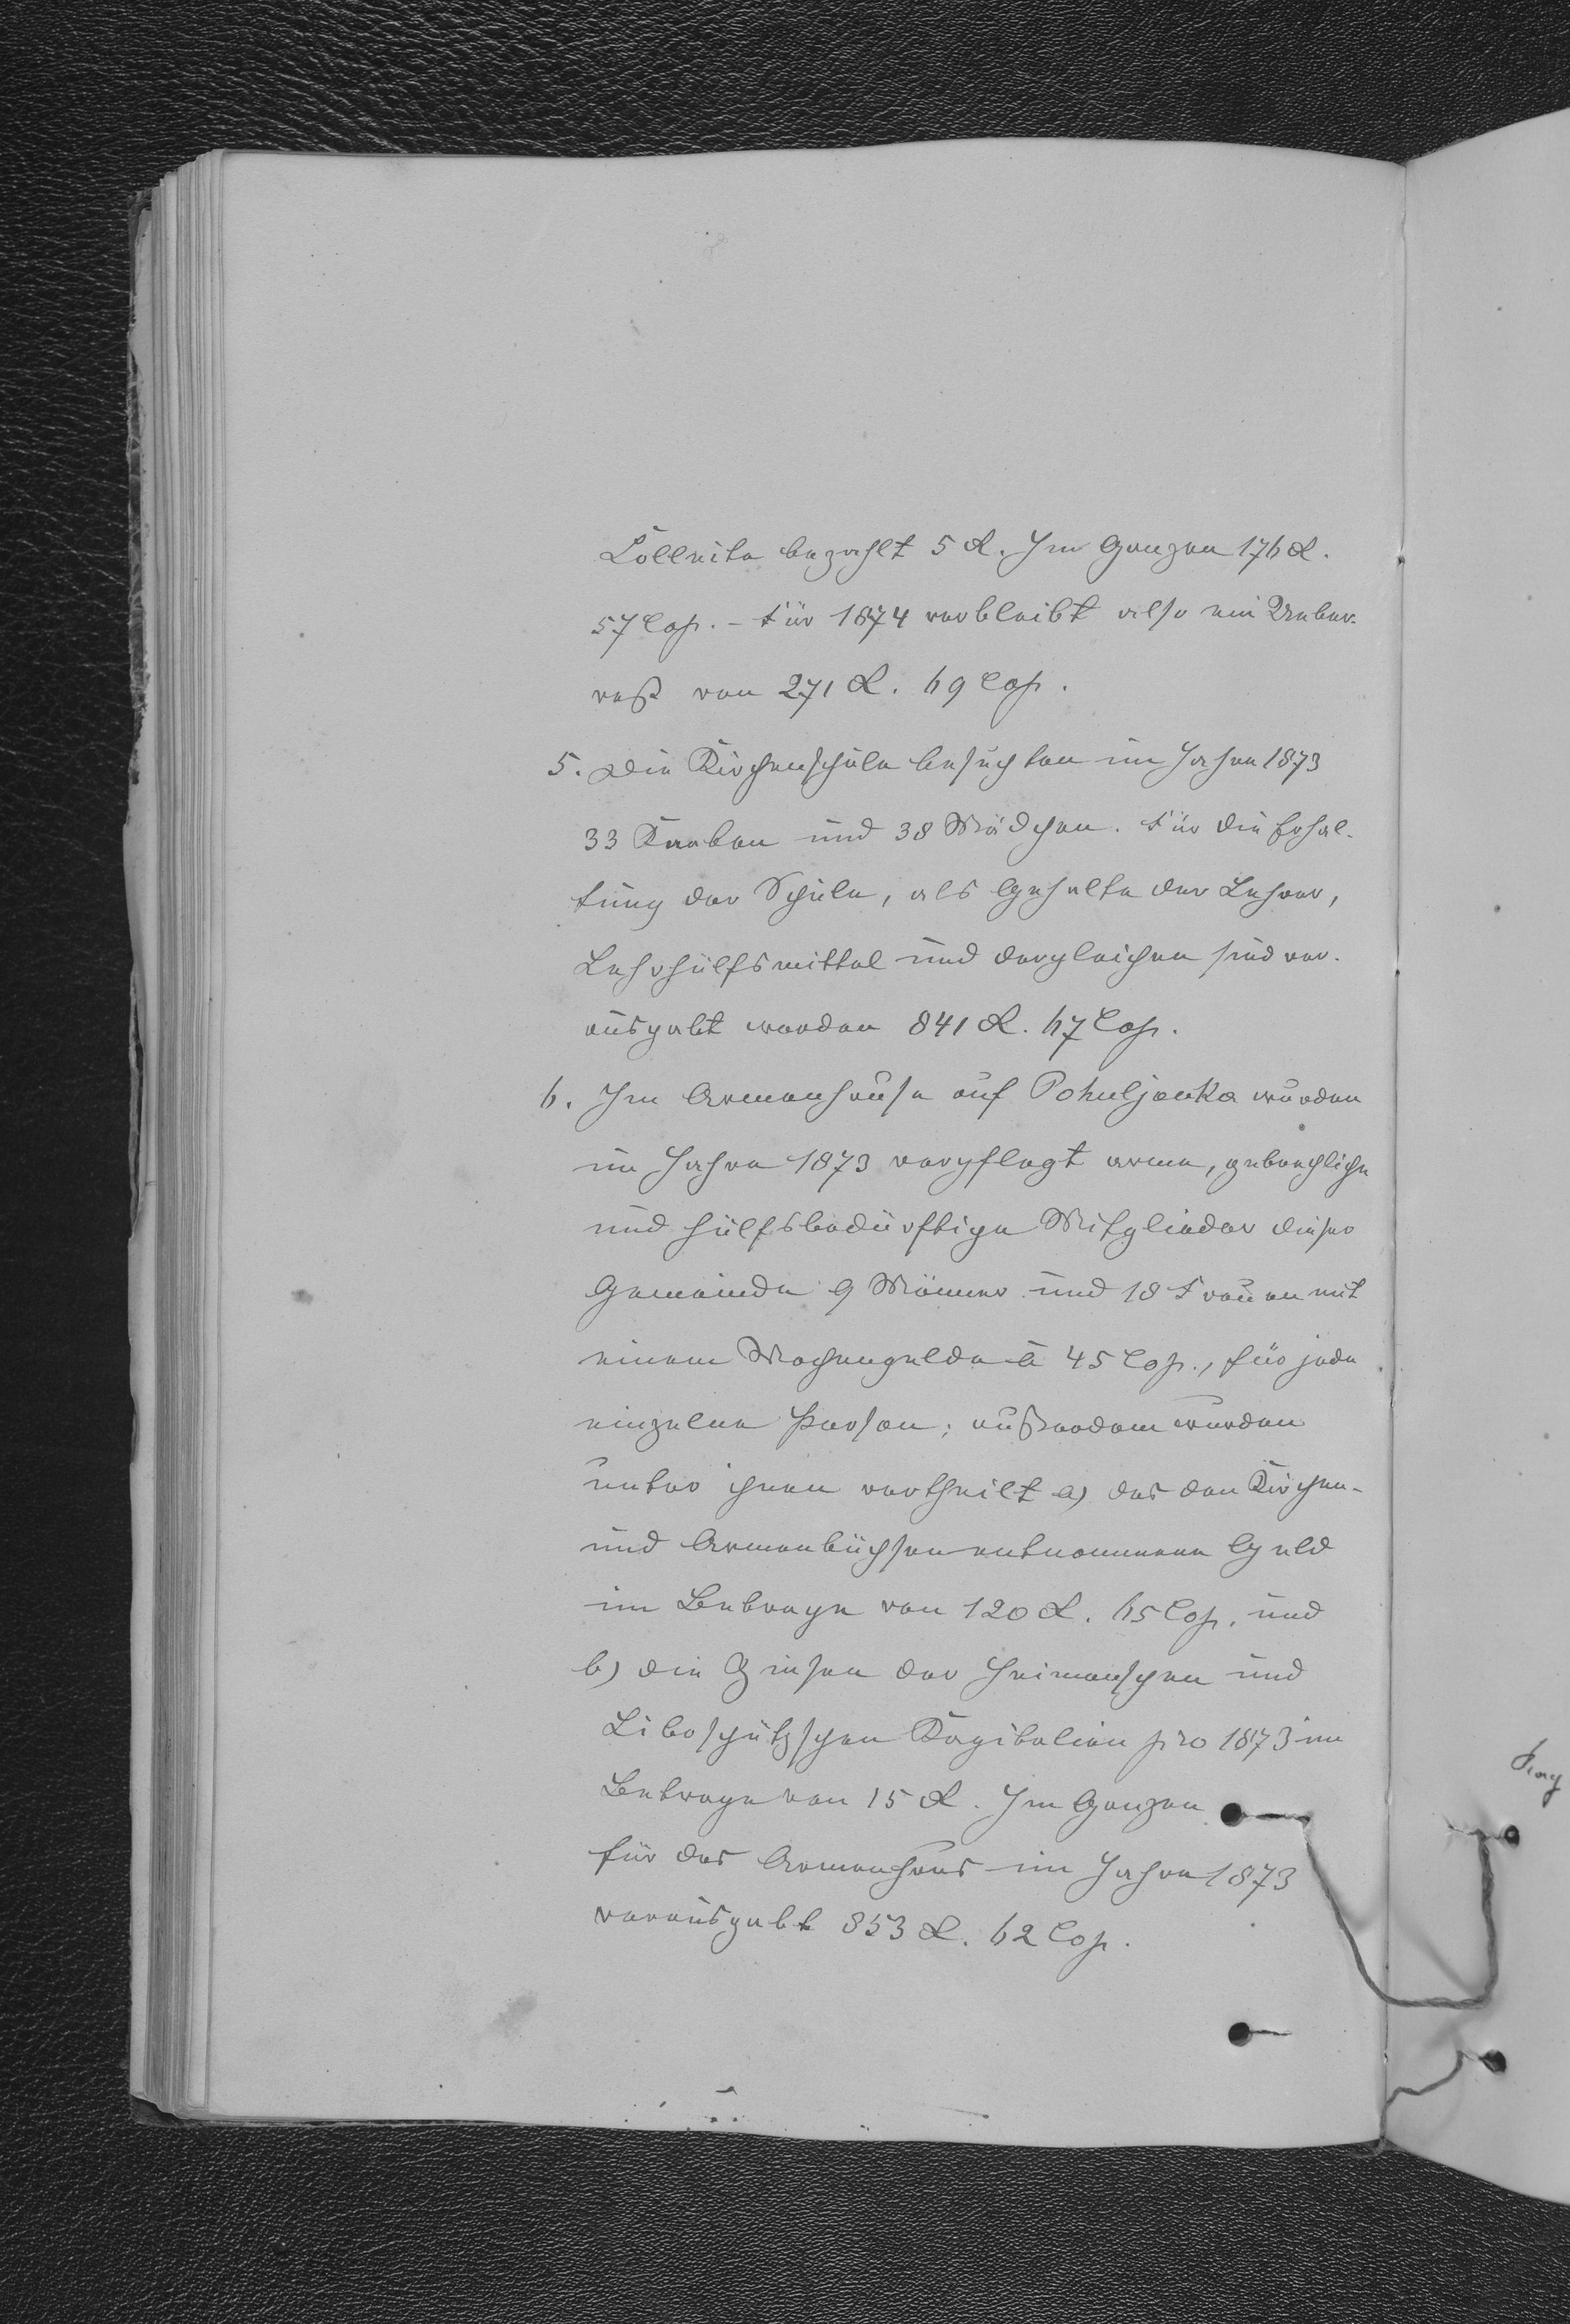 Collecte bezahlt 5 R. Im Ganzen 176 R.
57 Cop. – Für 1874 verbleibt also ein Ueber-
rest von 271 R. 69 Cop.
5. Die Kirchenschule besuchten im Jahre 1873
33 Knaben und 38 Mädchen. Für die Erhal-
tung der Schule, als Gehalte der Lehrer,
Lehrhülfsmittel und dergleichen sind ver-
ausgabt worden 841 R. 67 Cop.
6. Im Armenhause auf Pohuljanka wurden
im Jahre 1873 verpflegt arme, gebrechliche
und hülfsbedürftige Mitglieder dieser
Gemeinde 9 Männer und 18 Frauen mit
einem Wochengelde à 45 Cop., für jede
einzelne Person; außerdem wurden
unter ihnen vertheilt a) das den Kirchen-
und Armenbüchsen entnommene Geld
im Betrage von 120 R. 65 Cop. und
b) die Zinsen der Heimanschen und
Liboschützschen Kapitalien pro 1873 im
Betrage von 15 R. Im Ganzen
für das Armenhaus im Jahre 1873
verausgabt 853 R. 62 Cop.